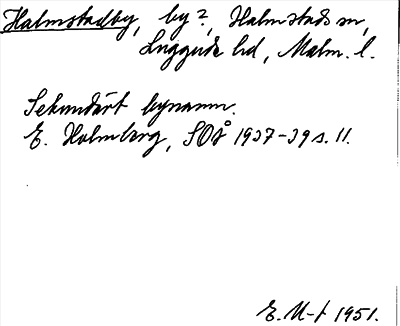 Halmstadby, by?, Halmstads sn,
Luggude hd, Malm. l.
Sekundärt bynamn.
E. Holmberg, SOÅ 1937-39 s. 11.
E. M-t 1951.